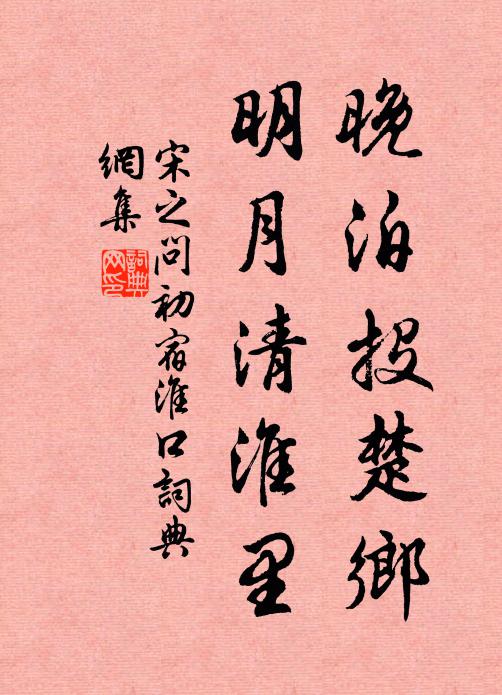 晚泊投楚鄉
明月清淮里
宋之問初宿淮口詞典
網集
詞典
网印